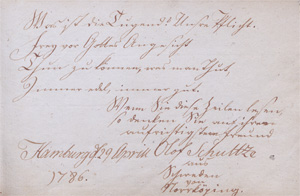 Was ist die Tugend? Unsre Pflicht.
Frey vor Gottes Angesicht
Thun zu können, was man Thut,
Immer edel, immer gut.
Wenn Sie diese Zeilen lesen,
so denken Sie an ihren
aufrichtigsten Freund
Hamburg d 29 Aprill Olof Schultze
1786. aus
Schweden
von
Norrköping.